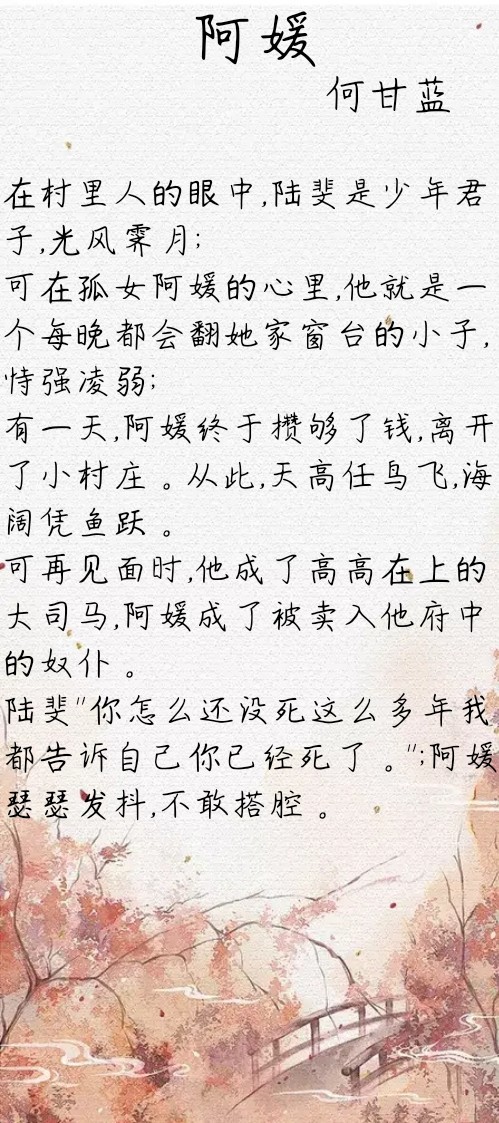 阿媛
何甘蓝
在村里人的眼中,陆斐是少年君
子,光风霁月;
可在孤女阿媛的心里,他就是一
个每晚都会翻她家窗台的小子,
恃强凌弱;
有一天,阿媛终于攒够了钱,离开
了小村庄。从此,天高任鸟飞,海
阔凭鱼跃。
可再见面时,他成了高高在上的
大司马,阿媛成了被卖入他府中
的奴仆。
陆斐"你怎么还没死这么多年我
都告诉自己你已经死了。";阿媛
瑟瑟发抖,不敢搭腔。